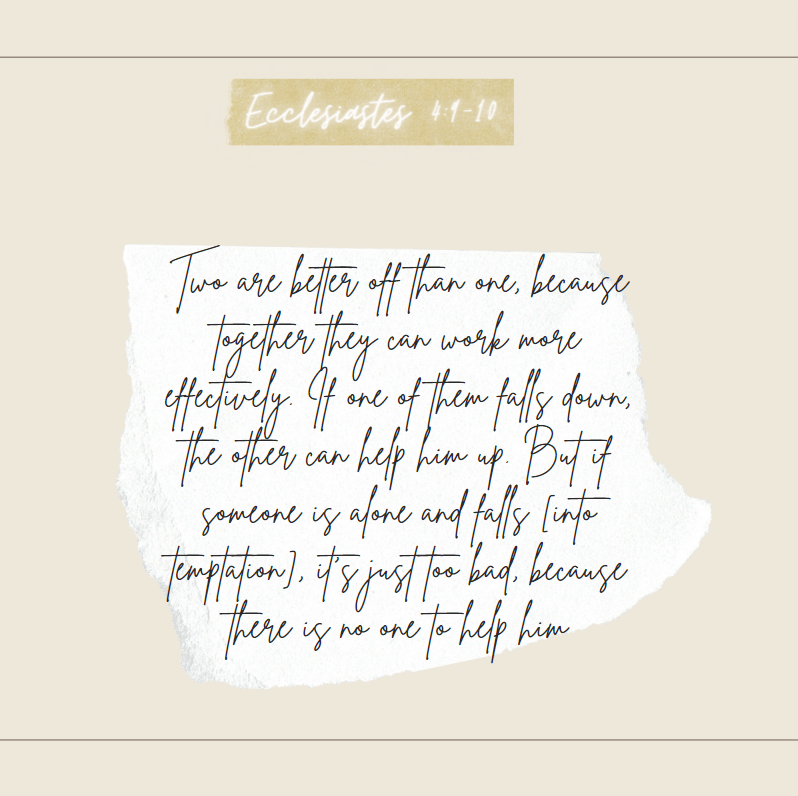 Ecclesiastes 4:9-10
Two are better off than one, because
together they can work more
effectively. If one of them falls down,
the other can help him up. But if
someone is alone and falls [into
temptation], it's just too bad, because
there is no one to help him